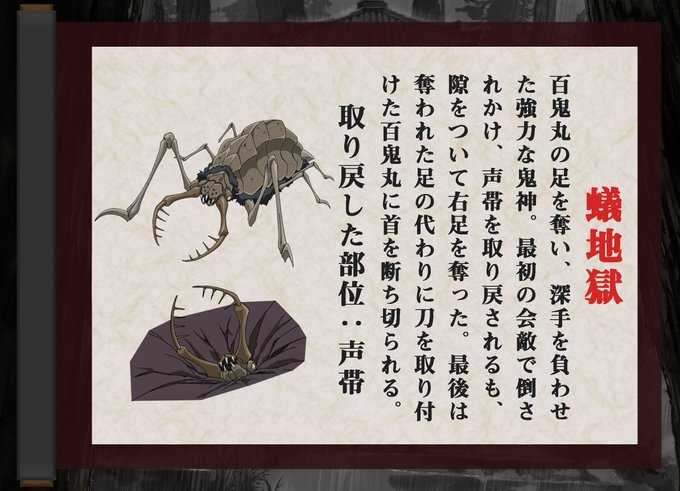 蟻地獄
百鬼丸の足を奪い、深手を負わせ
た強力な鬼神。最初の会敵で倒さ
れかけ、声帯を取り戻されるも、
隙をついて右足を奪った。最後は
奪われた足の代わりに刀を取り付
けた百鬼丸に首を断ち切られる。
取り戻した部位：声帯